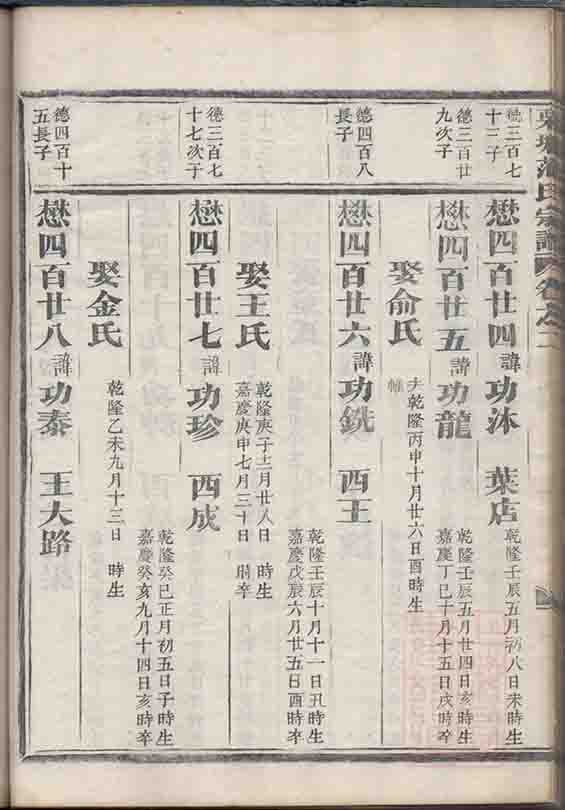 氏宗譜 卷之二
德三百七
十三子
懋四百廿四 諱功沐 葉店
乾隆壬辰五月初八日未時生
德三百廿
九次子
懋四百廿五 諱功龍
乾隆壬辰五月廿四日亥時生
嘉慶丁巳十月十五日戌時卒
娶俞氏
夫乾隆丙申十月廿六日酉時生
德四百八
長子
懋四百廿六 諱功銑 西王
乾隆壬辰十月十一日丑時生
嘉慶戊辰六月廿五日酉時卒
娶王氏
乾隆庚子十二月廿八日 時生
嘉慶庚申七月三十日 時卒
德三百七
十七次子
懋四百廿七 諱功珍 西成
乾隆癸巳正月初五日子時生
嘉慶癸亥九月十四日亥時卒
娶金氏
乾隆乙未九月十三日 時生
德四百十
五長子
懋四百廿八 諱功泰 王大路